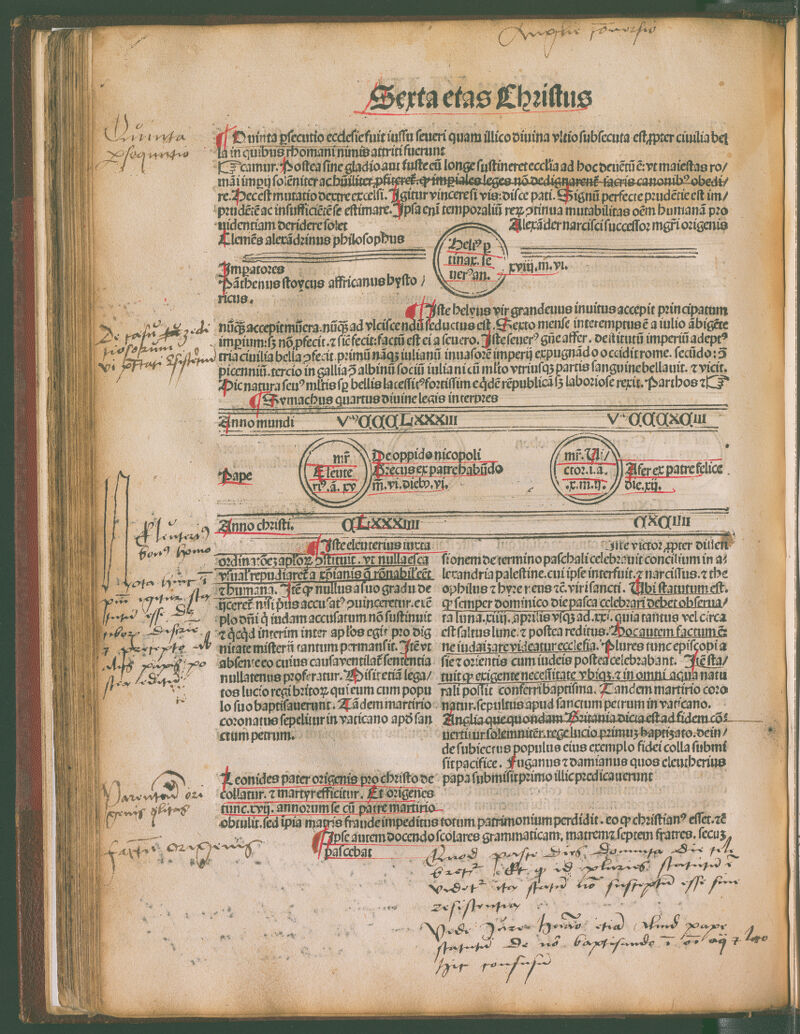 Anglie conversio
Sexta etas Christus
Quinta
psequutio
Quinta ꝑsecutio ecclesie fuit iussu seueri quam illico diuina vltio subsecuta est, ꝓpter ciuilia bel
la in quibus rhomani nimis attriti fuerunt
☞camur. Postea sine gladio aut fuste cū longe sustineret ecclīa ad hoc deuētū ē: vt maiestas ro/
māi impij solēniter ac hūiliter ꝓfiteret᷑. ꝙ impiales leges nō dedignarent᷑ sacris canonibꝰ obedi/
re. Hec est mutatio dextre excelsi. Igitur vincere si vis: disce pati. Signū perfecte prudētie est im/
prudētē ac insufficiētē se estimare. Ipsa em̄ temporaliū rerꝝ ꝯtinua mutabilitas oēm humanā pro
uidentiam deridere solet
Alexāder narcisci successor mgr̄i origenis
Clemēs alexādrinus philosophus
Helꝰ p
tinax. se
uerꝰ an.
xviij. m. vi.
Imꝑatores
Pāthenus stoycus affricanus hysto /
ricus.
De casu
Iste helyus vir grandeuus inuitus accepit principatum
nūqͣ accepit mūera. nūqͣ ad vlciscendū seductus est. Sexto mense interemptus ē a iulio ābigēte
impium: sꝫ nō ꝓfecit. ⁊ sic fecit: factū est ei a seuero. Iste seuerꝰ gn̄e affer. destitutū imperiū adeptꝰ
tria ciuilia bella ꝯfecit. primū nāqꝫ iulianū inuasorē imperij expugnādo occidit rome. secūdo: ꝯ
picenniū. tercio in gallia ꝯ albinū sociū iuliani cū mlto vtriusqꝫ partis sanguine bellauit. ⁊ vicit.
Hic natura seuꝰ mltis sꝑ bellis lacessitꝰ fortissim eqͥdē rēpublicā sꝫ laboriose rexit. Parthos ⁊☞
Symachus quartus diuine legis interpres
Anno mundi VᵐCCCLXXXIII VᵐCCCXCIII
Pape
mr̄.
Eleute
riꝰ. ā. xv
De oppido nicopoli
Grecus ex patre habūdo
m. vi. dieb. vi.
mr̄. Vi/
ctor. i. a.
.x. m. ij.
Afer ex patre felice
die. xij.
Anno christi. CLXXXIIII CXCIIII
Eleuteriꝰ
bonꝰ homo
Iste eleuterius iuxta
ordinatōeꝫ aplorꝝ ꝯstituit. vt nulla esca
vsual' repudiaret᷑ a xp̄ianis ꝙ rōnabil' eēt
⁊ humana. Itē ꝙ nullus a suo gradu de
ijceret᷑ nisi pͥus accusatꝰ ꝯuinceretur. etē
plo dn̄i ꝙ iudam accusatum nō sustinuit
⁊ qͥcqͥd interim inter aplos egit pro dig
nitate misterij tantum permansit. Itē vt
absente eo cuius causa ventilat᷑ sententia
nullatenus proferatur. Misit etiā lega/
tos lucio regi britorꝝ qui eum cum popu
lo suo baptisauerunt. Tādem martirio
coronatus sepelitur in vaticano apō san
ctum petrum.
Iste victor ꝓpter dissen
sionem de termino paschali celebrauit concilium in a/
lexandria palestine. cui ipse interfuit. ⁊ narcissus. ⁊ the
ophilus ⁊ hyreneus ⁊ē. viri sancti. Vbi statutum est.
ꝙ semper dominico die pasca celebrari debet obserua/
ta luna. xiiij. aprilis vsqꝫ ad. xxi. quia tantus vel circa
est saltus lune. ⁊ postea reditus. Hoc autem factum ē:
ne iudaisare videatur ecclesia. Plures tunc episcopi a
sie ⁊ orientis cum iudeis postea celebrabant. Itē sta/
tuit ꝙ exigente necessitate vbiqꝫ ⁊ in omni aqua natu
rali possit conferri baptisma. Tandem martirio coro
natur. sepultus apud sanctum petrum in vaticano.
Anglia que quondam Britania dicta est ad fidem cō/
uertitur solemniter. rege lucio primuꝫ baptizato. dein/
de subiectus populus eius exemplo fidei colla submi
sit pacifice. Fuganus ⁊ damianus quos eleutherius
papa submisit primo illic predicauerunt
Leonides pater origenis pro christo de
collatur. ⁊ martyr efficitur. Et origenes
tunc. xvij. annorum se cū patre martirio
obtulit. sed ip̄ia matris fraude impeditus totum patrimonium perdidit. eo ꝙ christianꝰ esset. ⁊ē
Ipse autem docendo scolares grammaticam, matrem ⁊ septem fratres. secuꝫ
pascebat